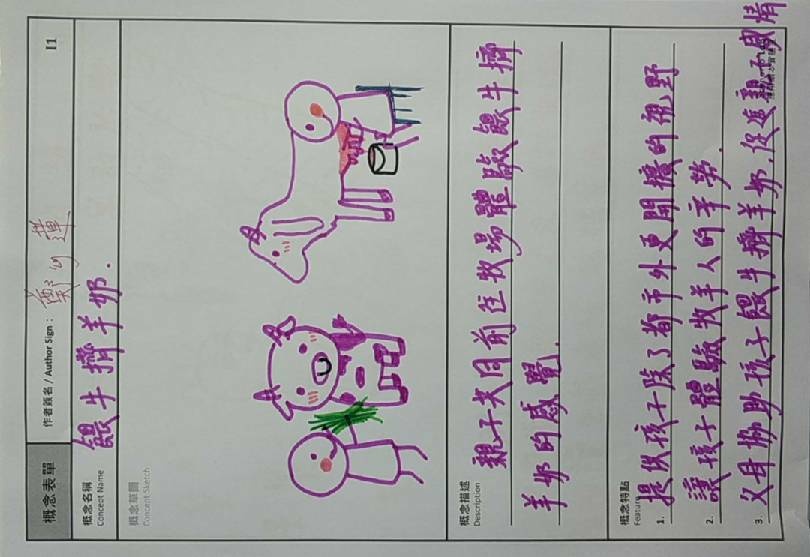 概念表單
作者簽名 / Author Sign :
I1
概念名稱
Concept Name
餵牛擠羊奶.
概念草圖
Concept Sketch
概念描述
Description
親子共同前往牧場體驗餵牛擠
羊奶的感覺.
概念特點
Feature
1. 提供孩子除了都市外更開擴的視野
2. 讓孩子體驗牧羊人的辛勞.
3. 父母協助孩子餵牛擠羊奶,促進親子感情